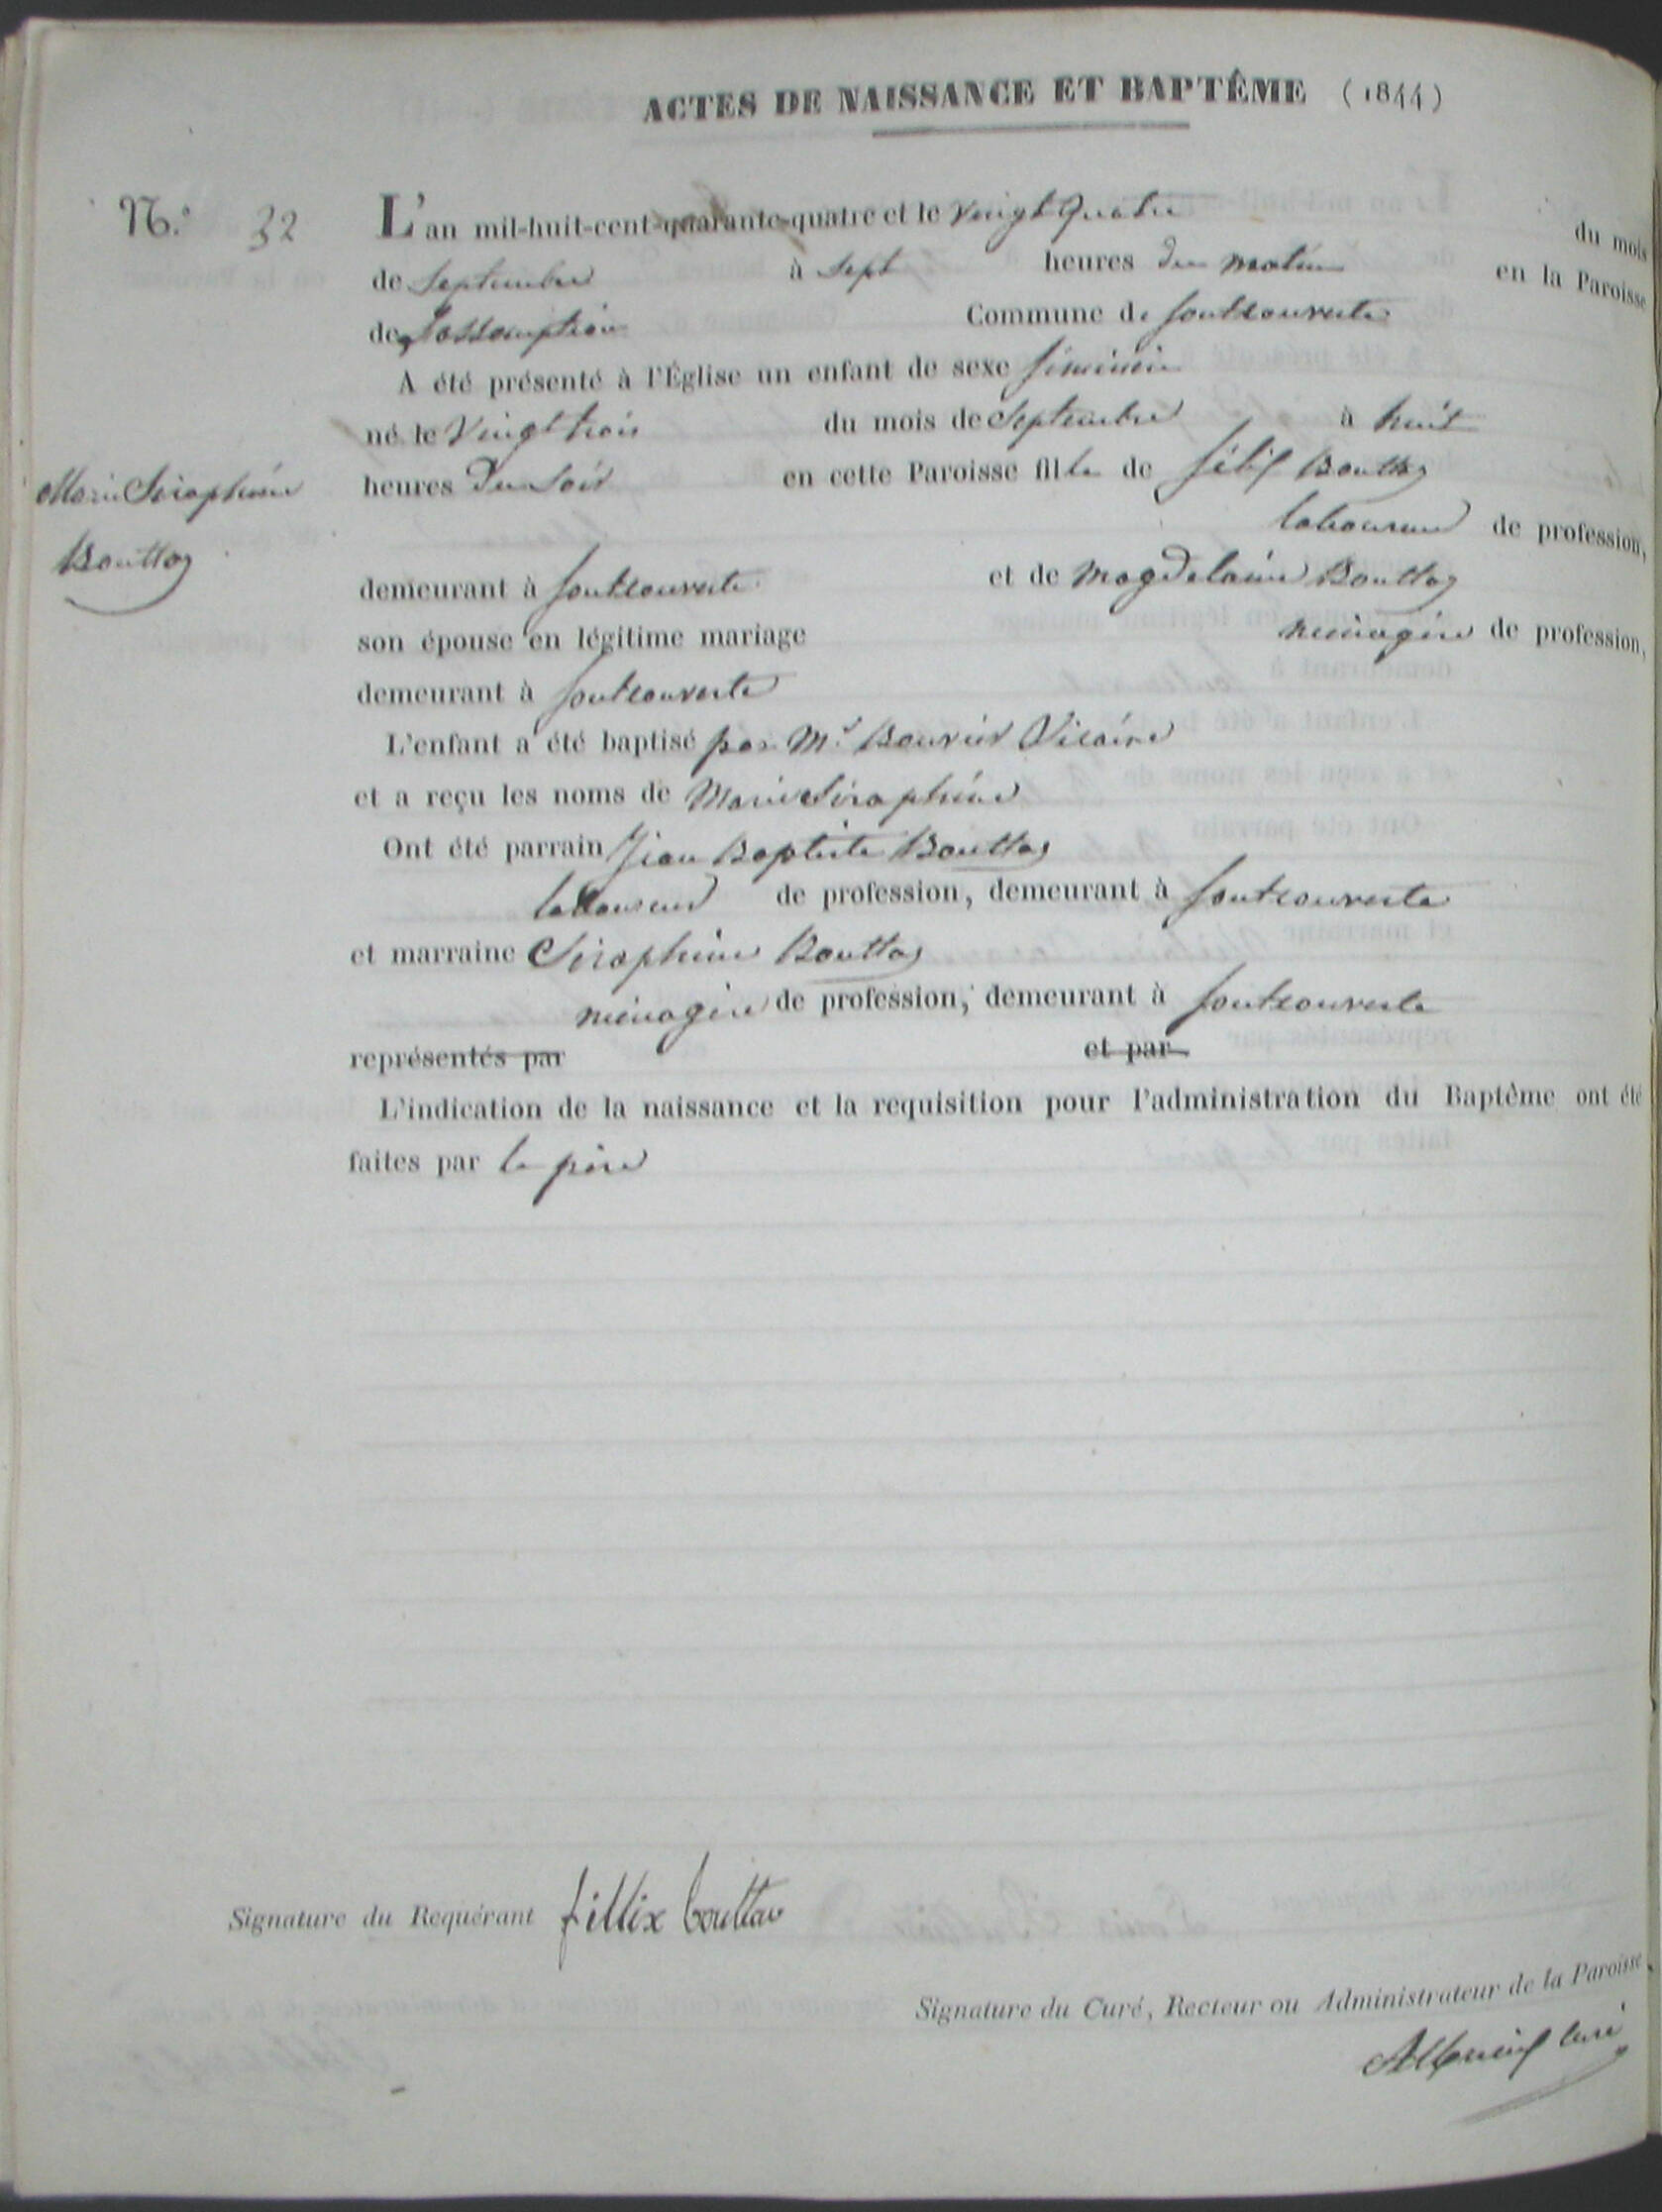 ACTES DE NAISSANCE ET BAPTÊME (1844)
N.º 32
L'an mil-huit-cent-quarante-quatre et le Vingt quatre du mois
de Septembre à Sept heures du matin en la Paroisse
de Lassomption Commune de fontcouverte
A été présenté à l'Église un enfant de sexe féminin
né le Vingt trois du mois de Septembre à huit
heures Du Soir en cette Paroisse fille de félix Bouttaz
Marie Séraphine
Bouttaz
laboureur de profession,
demeurant à fontcouverte et de Magdelaine Bouttaz
son épouse en légitime mariage ménagère de profession,
demeurant à fontcouverte
L'enfant a été baptisé par Mr Bouvier Vicaire
et a reçu les noms de Marie Séraphine
Ont été parrain Jean Baptiste Bouttaz
laboureur de profession, demeurant à fontcouverte
et marraine Séraphine Bouttaz
ménagère de profession, demeurant à fontcouverte
représentés par et par
L'indication de la naissance et la requisition pour l'administration du Baptême ont été
faites par le père
Signature du Requérant fillix bouttaz
Signature du Curé, Recteur ou Administrateur de la Paroisse.
curé